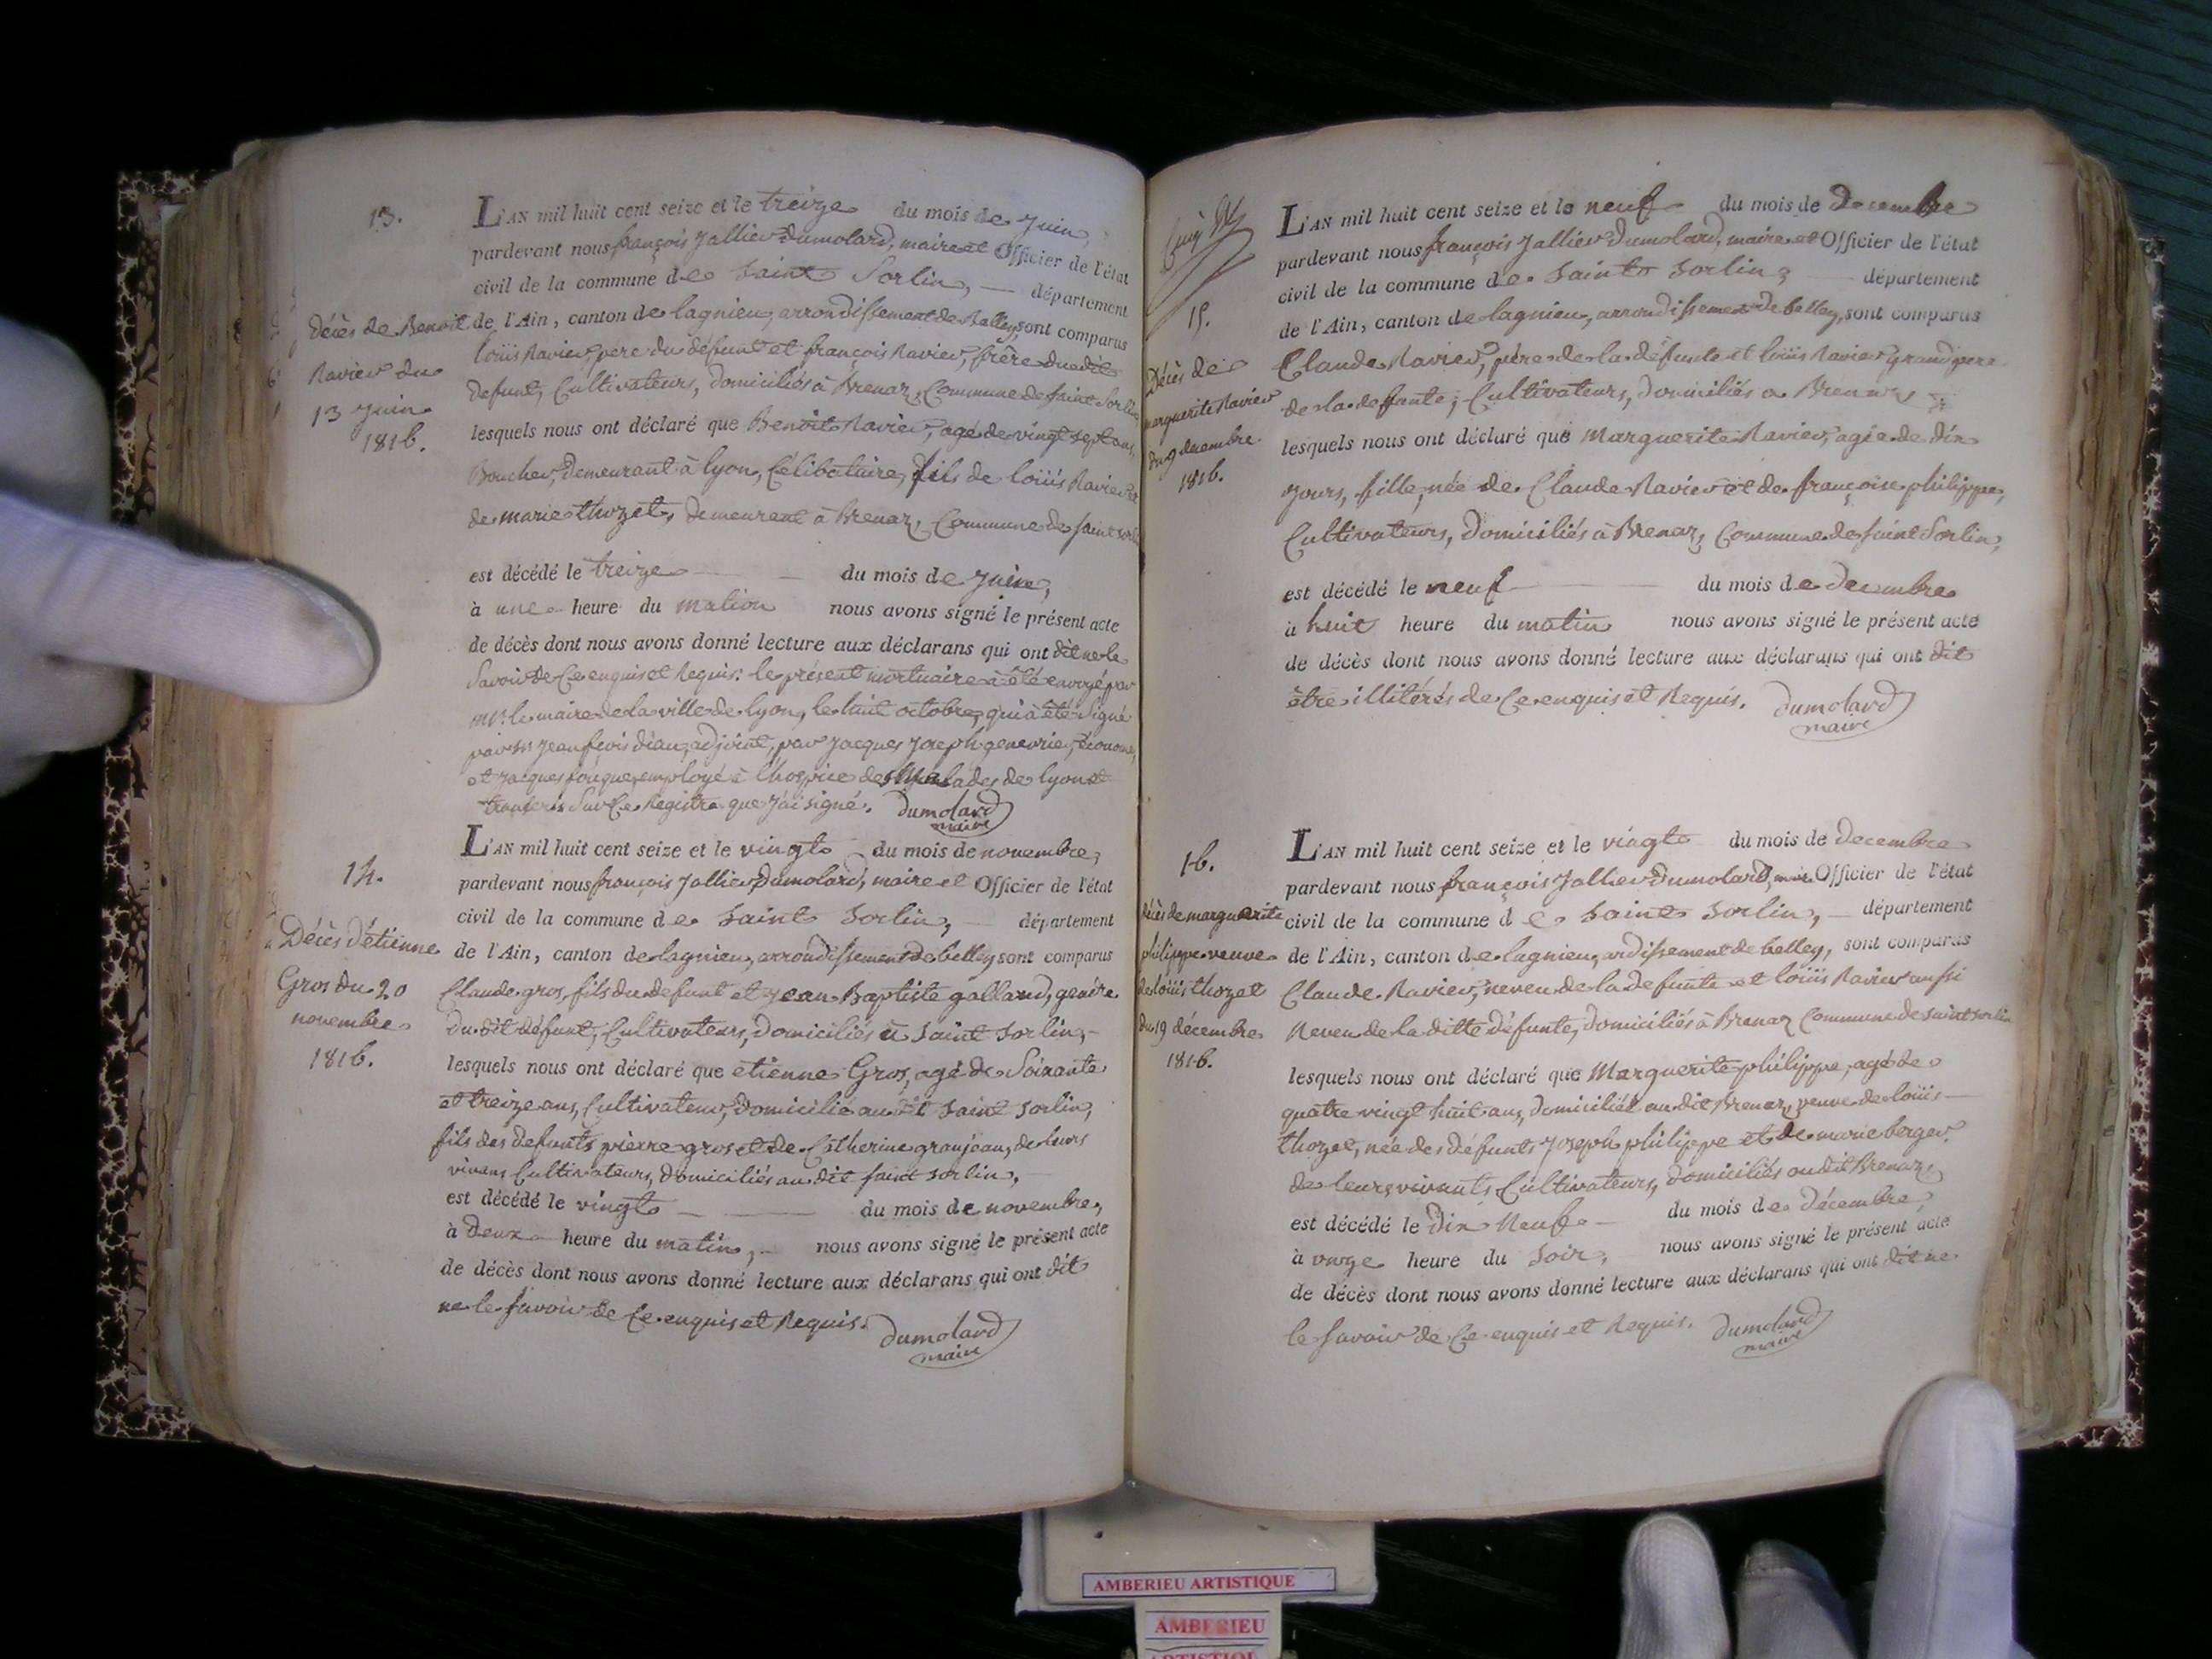 13.
Décès de Benoit
Ravier du
13 Juin
1816.
L'AN mil huit cent seize et le treize du mois de Juin,
pardevant nous françois Jallier Dumolard, maire et Officier de l'état
civil de la commune de Saint Sorlin, — département
de l'Ain, canton de lagnieu, arrondissement de Belley, sont comparus
loüis Ravier, pere du défunt et françois Ravier, frère du dit
defunt, Cultivateurs, domiciliés à Brenaz, Commune de saint Sorlin
lesquels nous ont déclaré que Benoit Ravier, agé de vingt sept ans,
Boucher, demeurant à lyon, Célibataire, fils de loüis Ravier et
de marie thozet, demeurant à Brenaz, Commune de saint sorlin
est décédé le treize — — du mois de Juin,
à une heure du matin nous avons signé le présent acte
de décès dont nous avons donné lecture aux déclarans qui ont dit ne le
Savoir de Ce enquis et Requis. le présent mortuaire a été envoyé par
mr. le maire de la ville de lyon, le huit octobre, qui à été signé
par mr Jean fçois adjoint, par Jacques Joseph économe,
et Jacques employé à l'hospice des Malades de lyon et
Sur Ce Registre que J'ai signé. Dumolard
maire
14.
Décès d'étienne
Gros du 20
novembre
1816.
L'AN mil huit cent seize et le vingt du mois de novembre,
pardevant nous françois Jallier Dumolard, maire et Officier de l'état
civil de la commune de Saint Sorlin, — département
de l'Ain, canton de lagnieu, arrondissement de belley sont comparus
Claude gros, fils du defunt et Jean Baptiste galland, gendre
du dit défunt, Cultivateurs, domiciliés à Saint Sorlin, —
lesquels nous ont déclaré que etienne Gros, agé de Soixante
et treize ans, Cultivateur, domicilié au dit Saint Sorlin,
fils des defunts pierre gros et de Catherine granjean, de leurs
vivans Cultivateurs, domiciliés au dit saint Sorlin,
est décédé le vingt — — du mois de novembre,
à deux heure du matin, — nous avons signé le présent acte
de décès dont nous avons donné lecture aux déclarans qui ont dit
ne le savoir de Ce enquis et Requis. Dumolard
maire
15.
Décès de
marguerite Ravier
du 9 decembre
1816.
L'AN mil huit cent seize et le neuf du mois de Decembre
pardevant nous françois Jallier Dumolard, maire et Officier de l'état
civil de la commune de Saint Sorlin, — département
de l'Ain, canton de lagnieu, arrondissement de belley, sont comparus
Claude Ravier, père de la défunte et loüis Ravier grand pere
de la deffunte, Cultivateurs, domiciliés a Brenaz
lesquels nous ont déclaré que Marguerite Ravier, agée de dix
jours, fille, née de Claude Ravier et de françoise philippe,
Cultivateurs, domiciliés à Brenaz, Commune de saint Sorlin,
est décédé le neuf — du mois de decembre
à huit heure du matin nous avons signé le présent acte
de décès dont nous avons donné lecture aux déclarans qui ont dit
être illitérés de Ce enquis et Requis. Dumolard
maire
16.
décès de marguerite
philippe veuve
de loüis thozet
du 19 décembre
1816.
L'AN mil huit cent seize et le vingt du mois de decembre
pardevant nous françois Jallier Dumolard, maire Officier de l'état
civil de la commune de Saint Sorlin, — département
de l'Ain, canton de lagnieu, ardissement de belley, sont comparus
Claude Ravier, neveu de la defunte et loüis Ravier aussi
Neveu de la ditte défunte, domiciliés à Brenaz Commune de saint sorlin
lesquels nous ont déclaré que Marguerite philippe, agé de
quatre vingt huit ans, domiciliée au dit Brenaz, veuve de loüis —
thozet, née des défunts Joseph philippe et de marie berger,
de leurs vivants Cultivateurs, domiciliés au dit Brenaz,
est décédé le Dix Neuf — du mois de décembre,
à onze heure du Soir, nous avons signé le présent acte
de décès dont nous avons donné lecture aux déclarans qui ont dit ne
le Savoir de Ce enquis et Requis. Dumolard
maire
AMBERIEU ARTISTIQUE
AMBERIEU
ARTISTIQUE